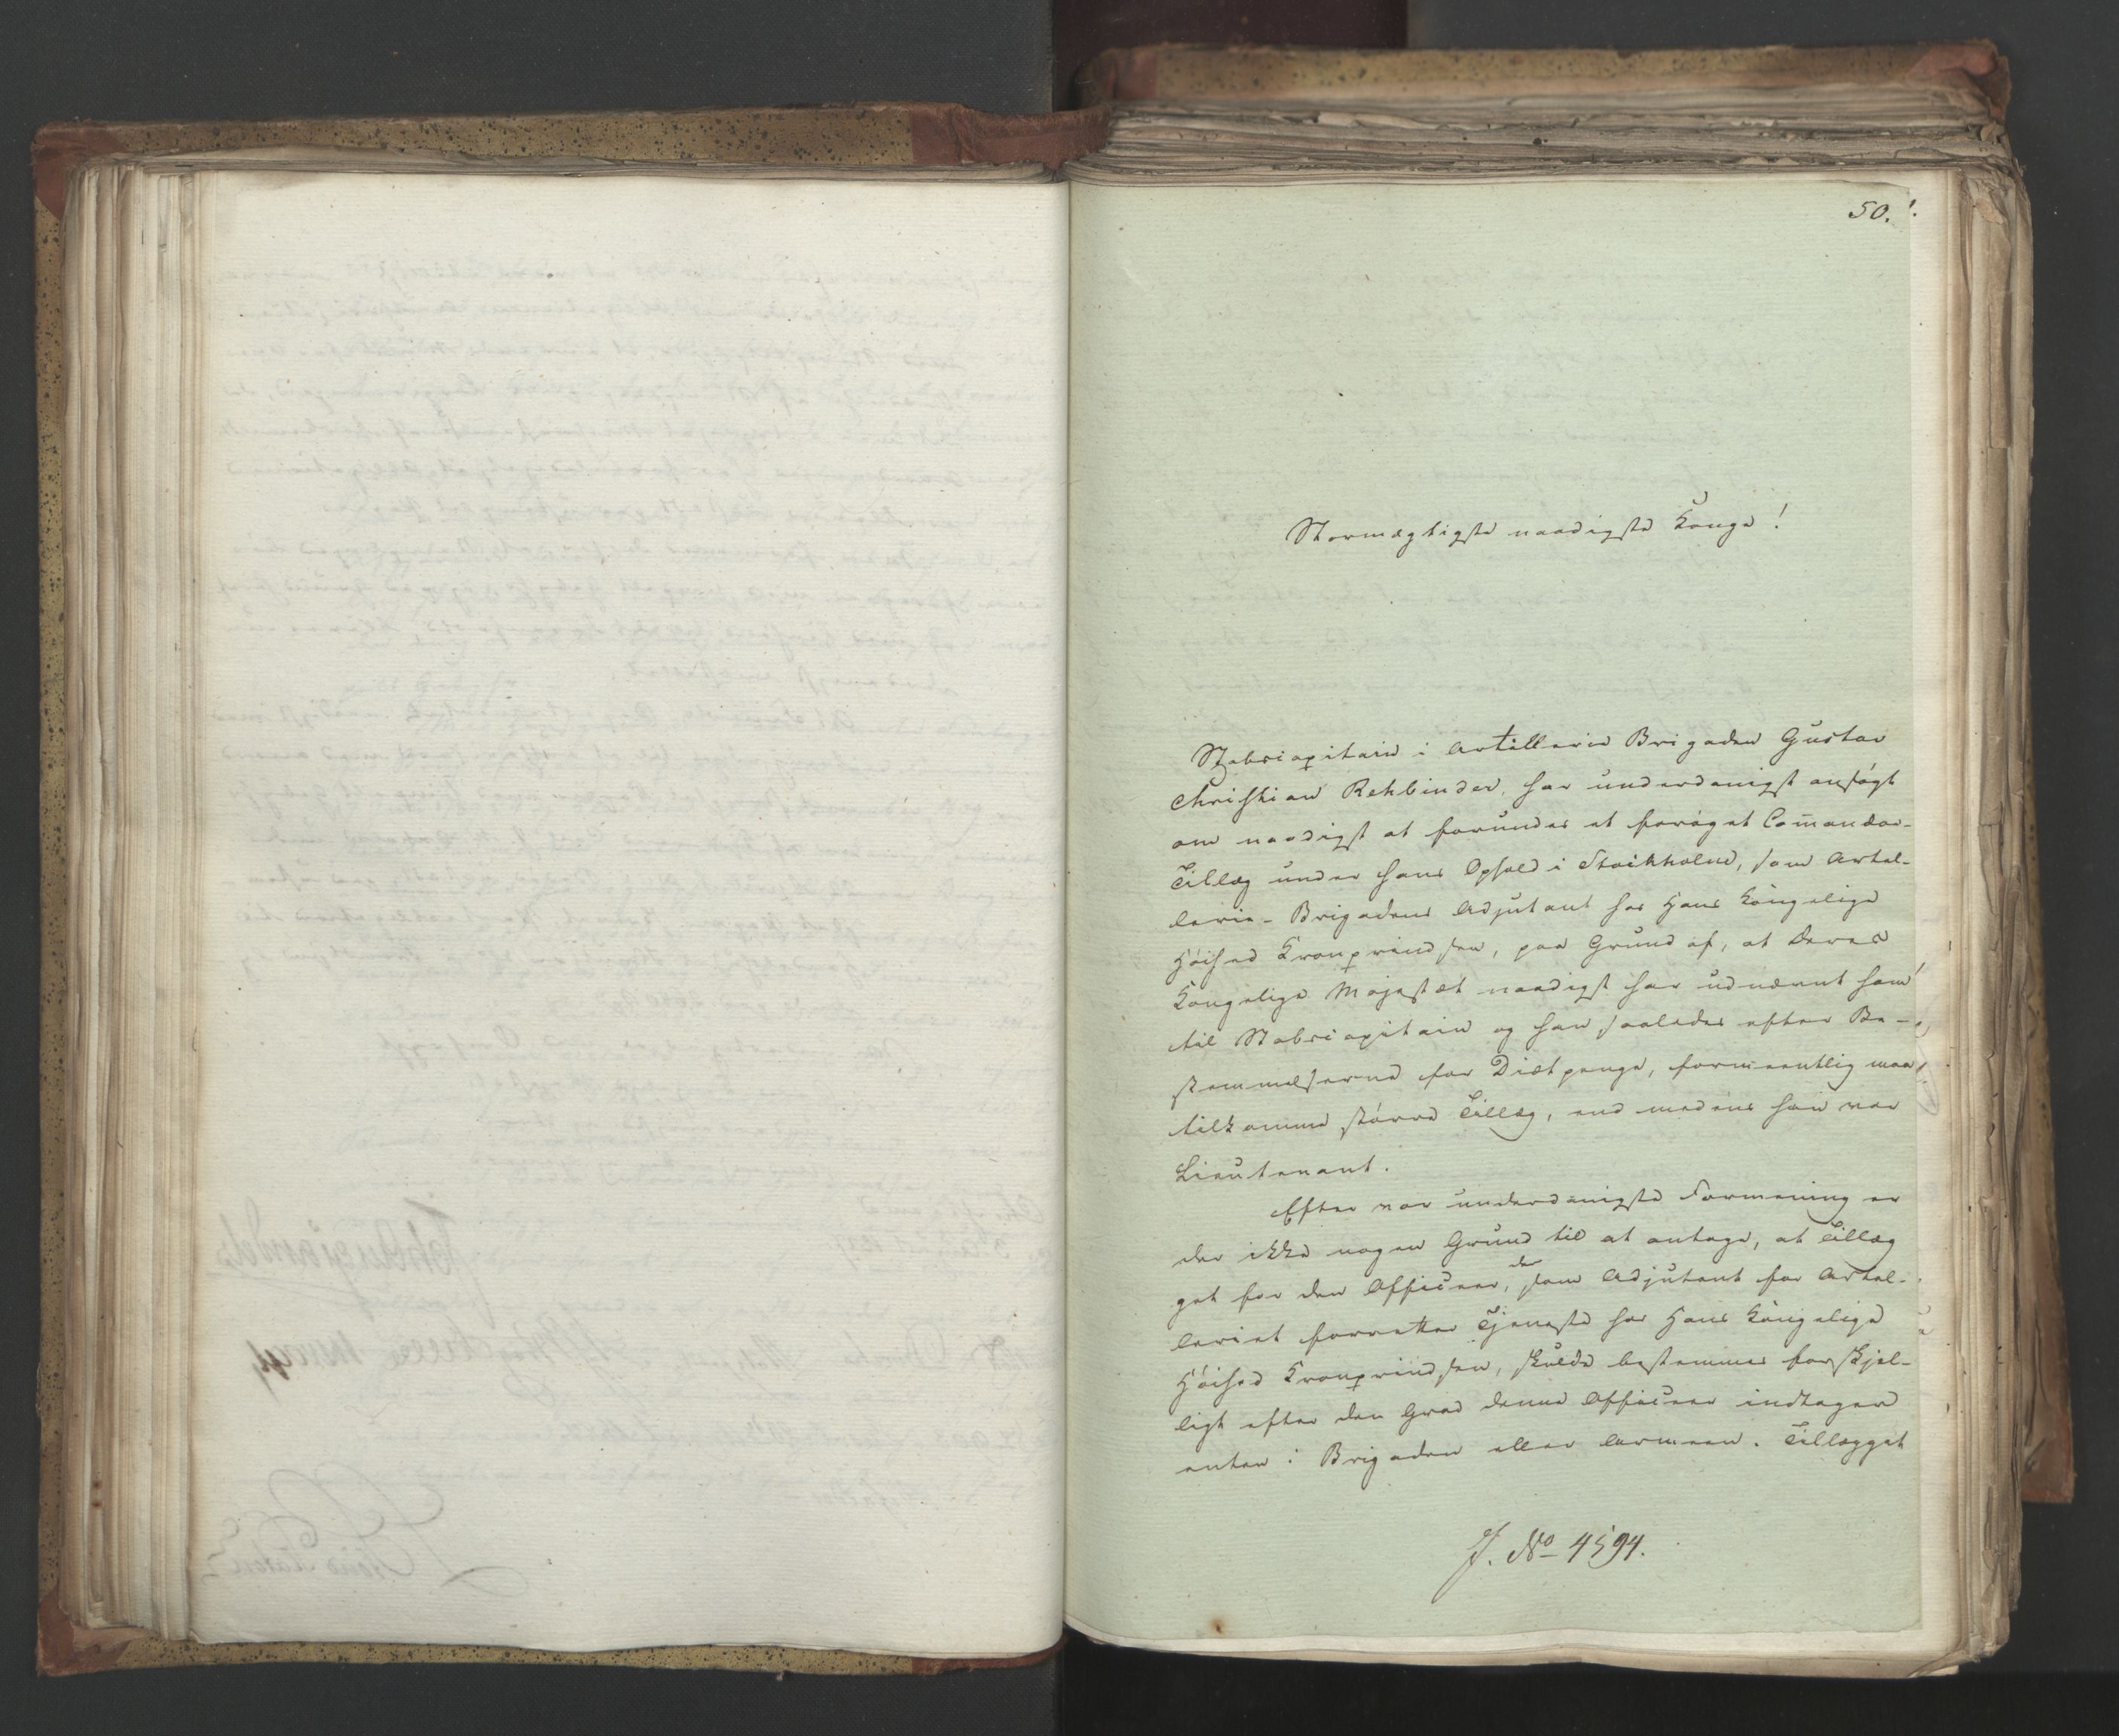 50.
Stormægtigste naadigste Konge!
Stabscapitain i Artillerie Brigaden Gustav
Christian Rehbinder, har underdanigst ansögt
om naadigst at forundes et foröget Com̄andoe-
Tillæg under hans Ophold i Stockholm, som Artil-
lerie-Brigadens Adjutant hos Hans Kongelige
Höihed Kronprindsen, paa Grund af, at Deres
Kongelige Majestæt naadigst har udnævnt ham
til Stabscapitain og han saaledes efter Be-
stemmelserne for Diætpenge, formeentlig maa
tilkomme större Tillæg, end medens han var
Lieutenant.
Efter vor underdanigste Formening er
der ikke nogen Grund til at antage, at Tillæg
get for den Officeer, der som Adjutant for Artil-
leriet forretter Tjeneste hos Hans Kongelige
Höihed Kronprindsen, skulde bestemmes forskjel-
ligt efter den Grad denne Officeer indtager
enten i Brigaden eller Armeen. Tillægget
J. No 4594.